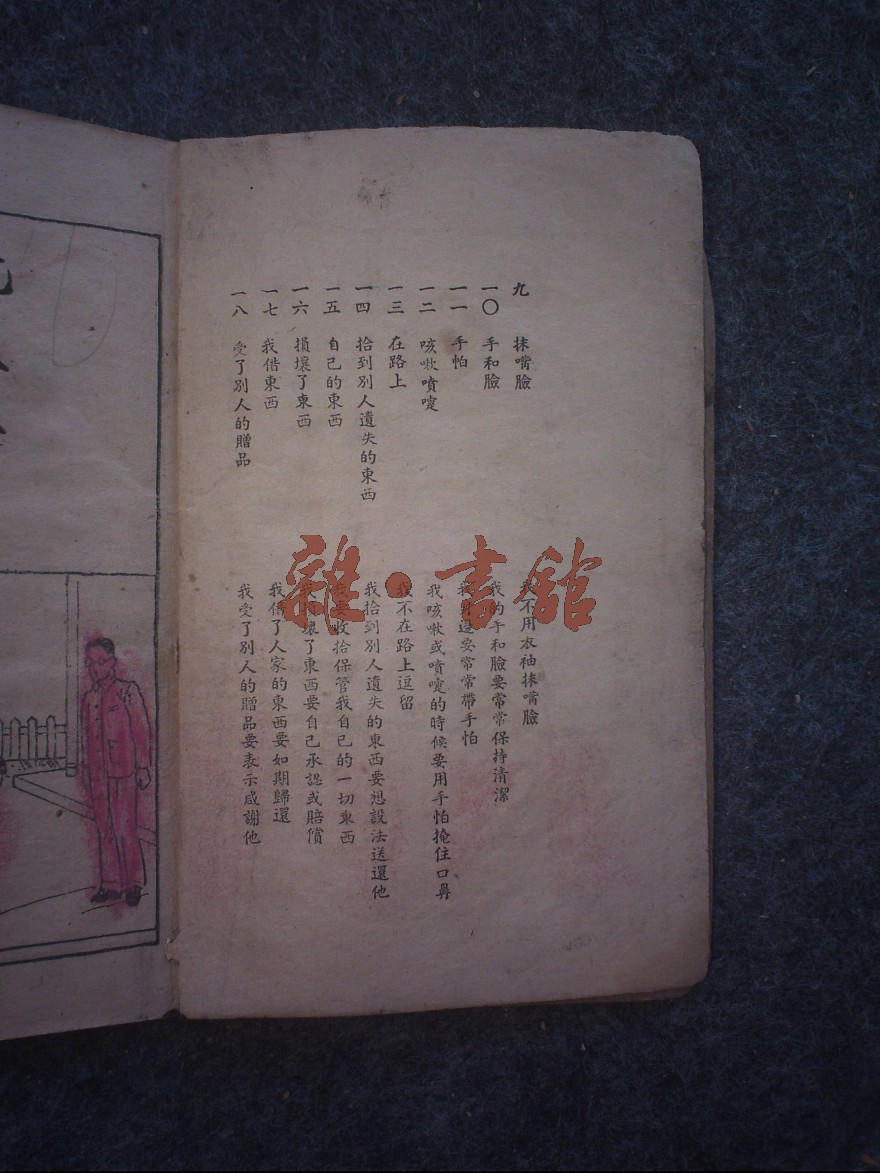 九 抹嘴臉 我不用衣袖抹嘴臉
一〇 手和臉 我的手和臉要常常保持清潔
一一 手怕 我身邊要常常帶手怕
一二 咳嗽噴嚏 我咳嗽或噴嚏的時候要用手怕掩住口鼻
一三 在路上 我不在路上逗留
一四 拾到別人遺失的東西 我拾到別人遺失的東西要想設法送還他
一五 自己的東西 我要收拾保管我自己的一切東西
一六 損壞了東西 我損壞了東西要自己承認或賠償
一七 我借東西 我借了人家的東西要如期歸還
一八 受了別人的贈品 我受了別人的贈品要表示感謝他
雜·書館